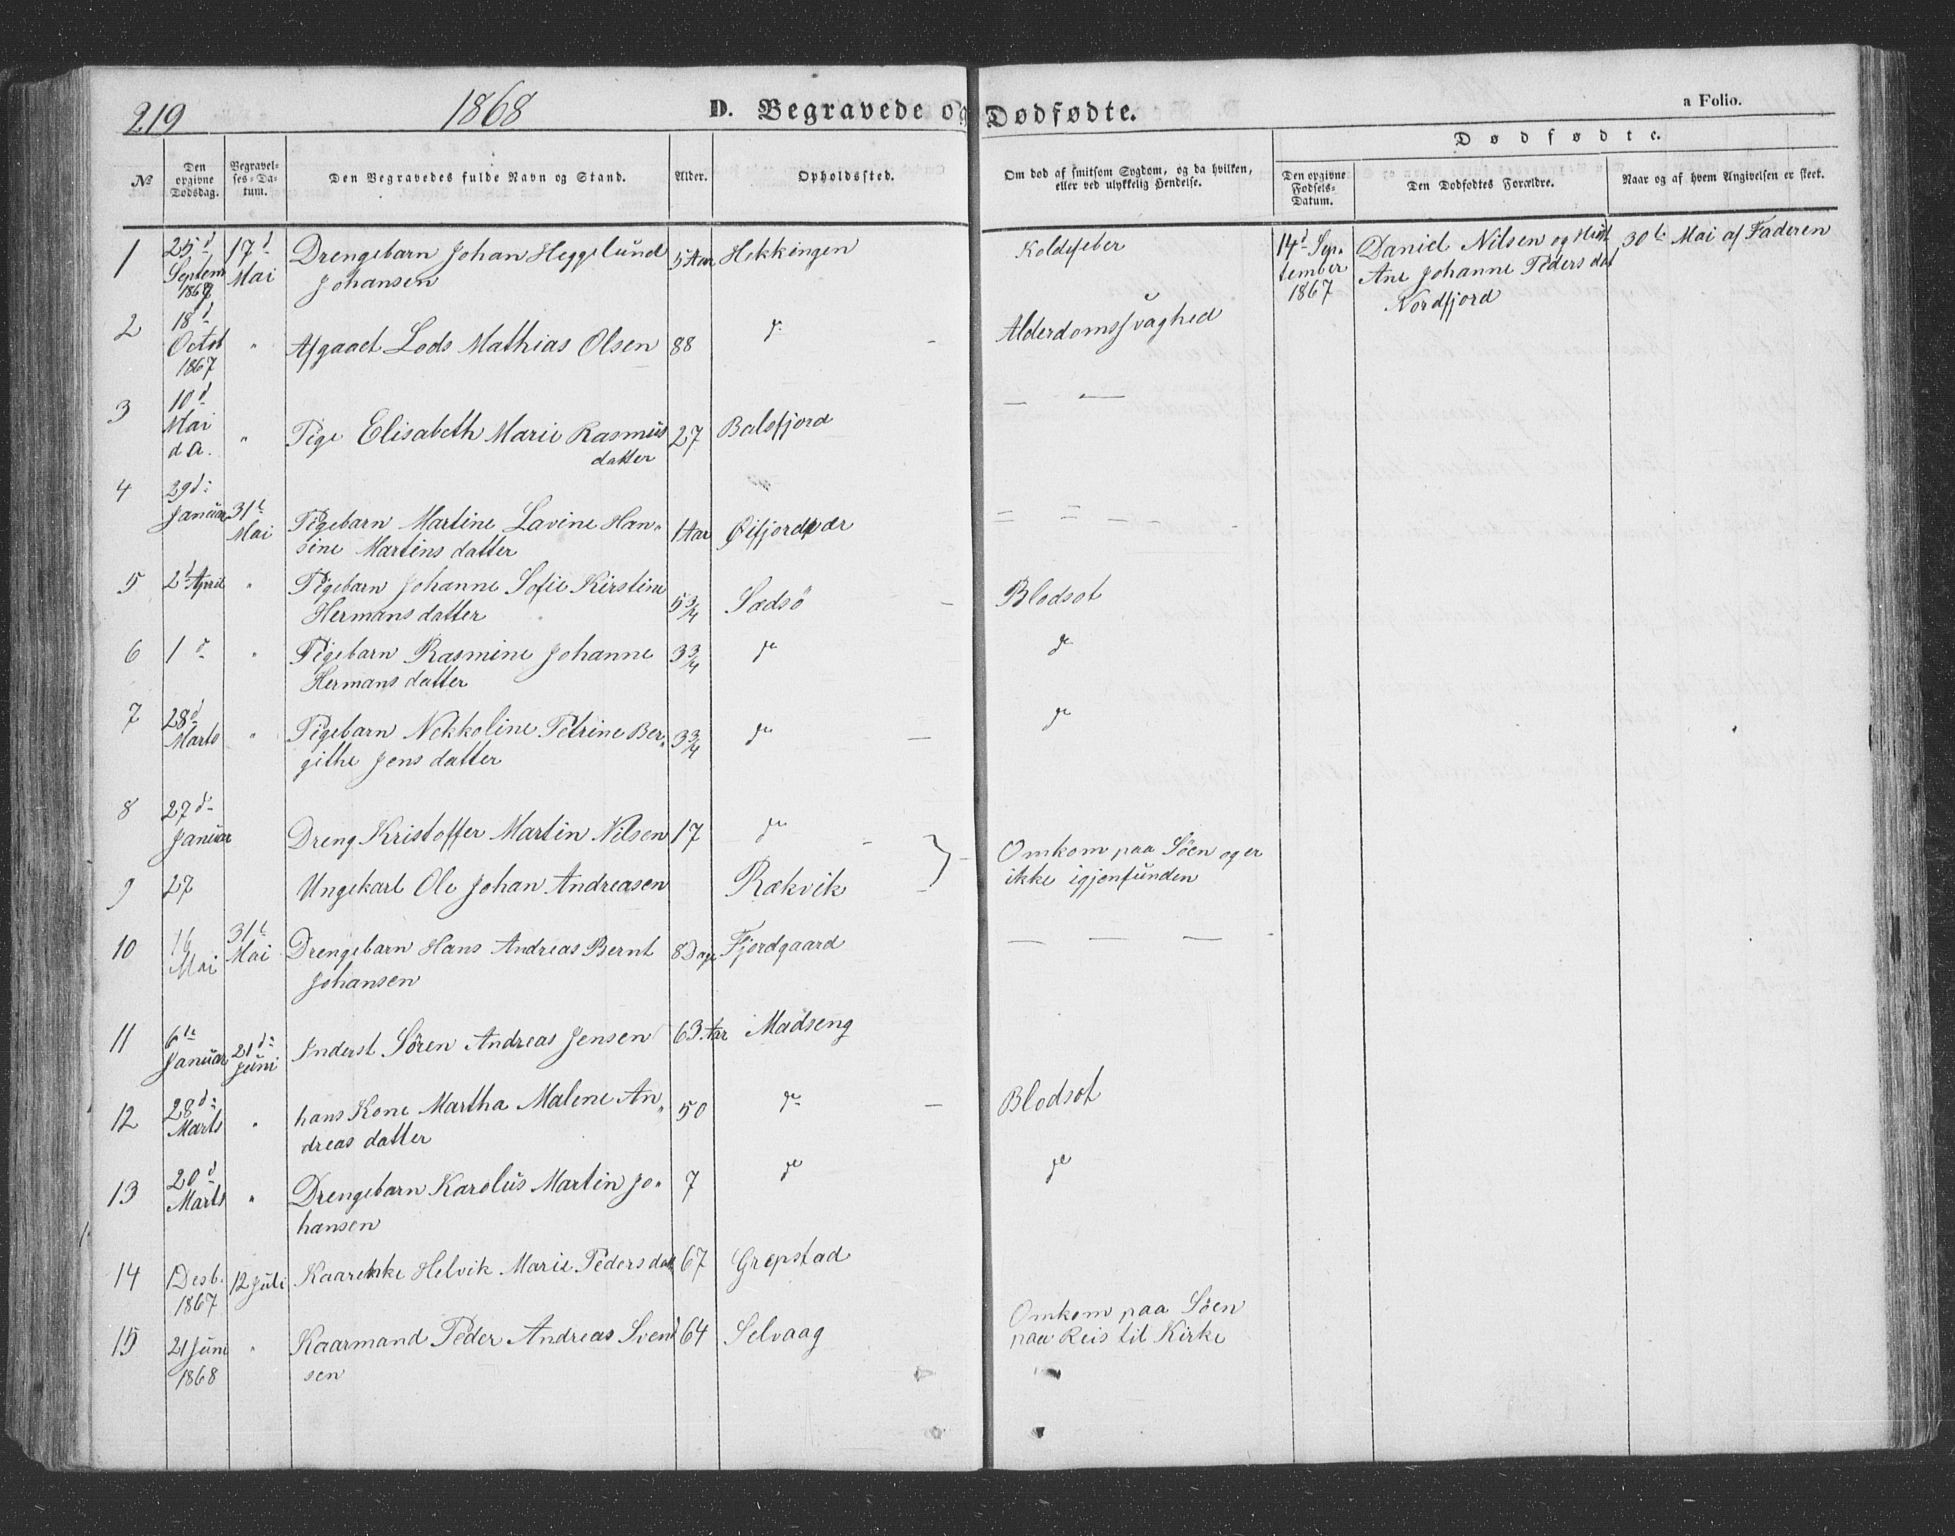 219 1868 D. Begravede og Dødfødte. a Folio.
Dødfødte.
No Den opgivne Dødsdag. Begravelses-Datum. Den Begravedes fulde Navn og Stand. Alder. Opholdssted. Om død af smitsom Sygdom, og da hvilken, eller ved ulykkelig Hendelse. Den opgivne Fødsels-Datum. Den Dødfødtes Forældre. Naar og af hvem Angivelsen er skeet.
1 25d Septem 1867 17d Mai Drengebarn Johan Heggelund 5 Aar Hekkingen Koldfeber 14d Sep- Daniel Nilsen og Hust 30te Mai af Faderen
Johansen tember Ane Johanne Peders dat
1867 Nordfjord
2 18d Octob 1867 " Afgaaet Lods Mathias Olsen 88 do Alderdomssvaghed
3 10d Mai d A. " Pige Elisabeth Marie Rasmus 27 Balsfjord — —
datter
4 29d Januar 31te Mai Pigebarn Martine Lavine Han- 1 Aar Øifjordvær
sine Martins datter
5 2d April " Pigebarn Johanne Sofie Kirstine 5 3/4 Sædsö — Blodsot
Hermans datter
6 1d " Pigebarn Rasmine Johanne 3 3/4 do do
Hermans datter
7 28d Marts " Pigebarn Nekkoline Petrine Ber- 3 3/4 do — do
githe Jens datter
8 27d Januar Dreng Kristoffer Martin Nilsen 17 do — Omkom paa Söen og er
9 27 Ungekarl Ole Johan Andreasen Rækvik — ikke igjenfunden
10 16 Mai 31te Mai Drengebarn Hans Andreas Bernt 8 Dage Fjordgaard — — —
Johansen
11 6te Januar 21d Juni Inderst Sören Andreas Jensen 63 Aar Madseng
12 28d Marts " hans Kone Martha Malene An- 50 do — Blodsot
dreas datter
13 20d Marts " Drengebarn Karolus Martin Jo- 7 do do
hansen
14 1 Desb. 1867 12 Juli Kaarenke Helvik Marie Peders dat 67 Grepstad
15 21 Juni 1868 " Kaarmand Peder Andreas Svend 64 Selvaag Omkom paa Söen
sen paa Reis til Kirke